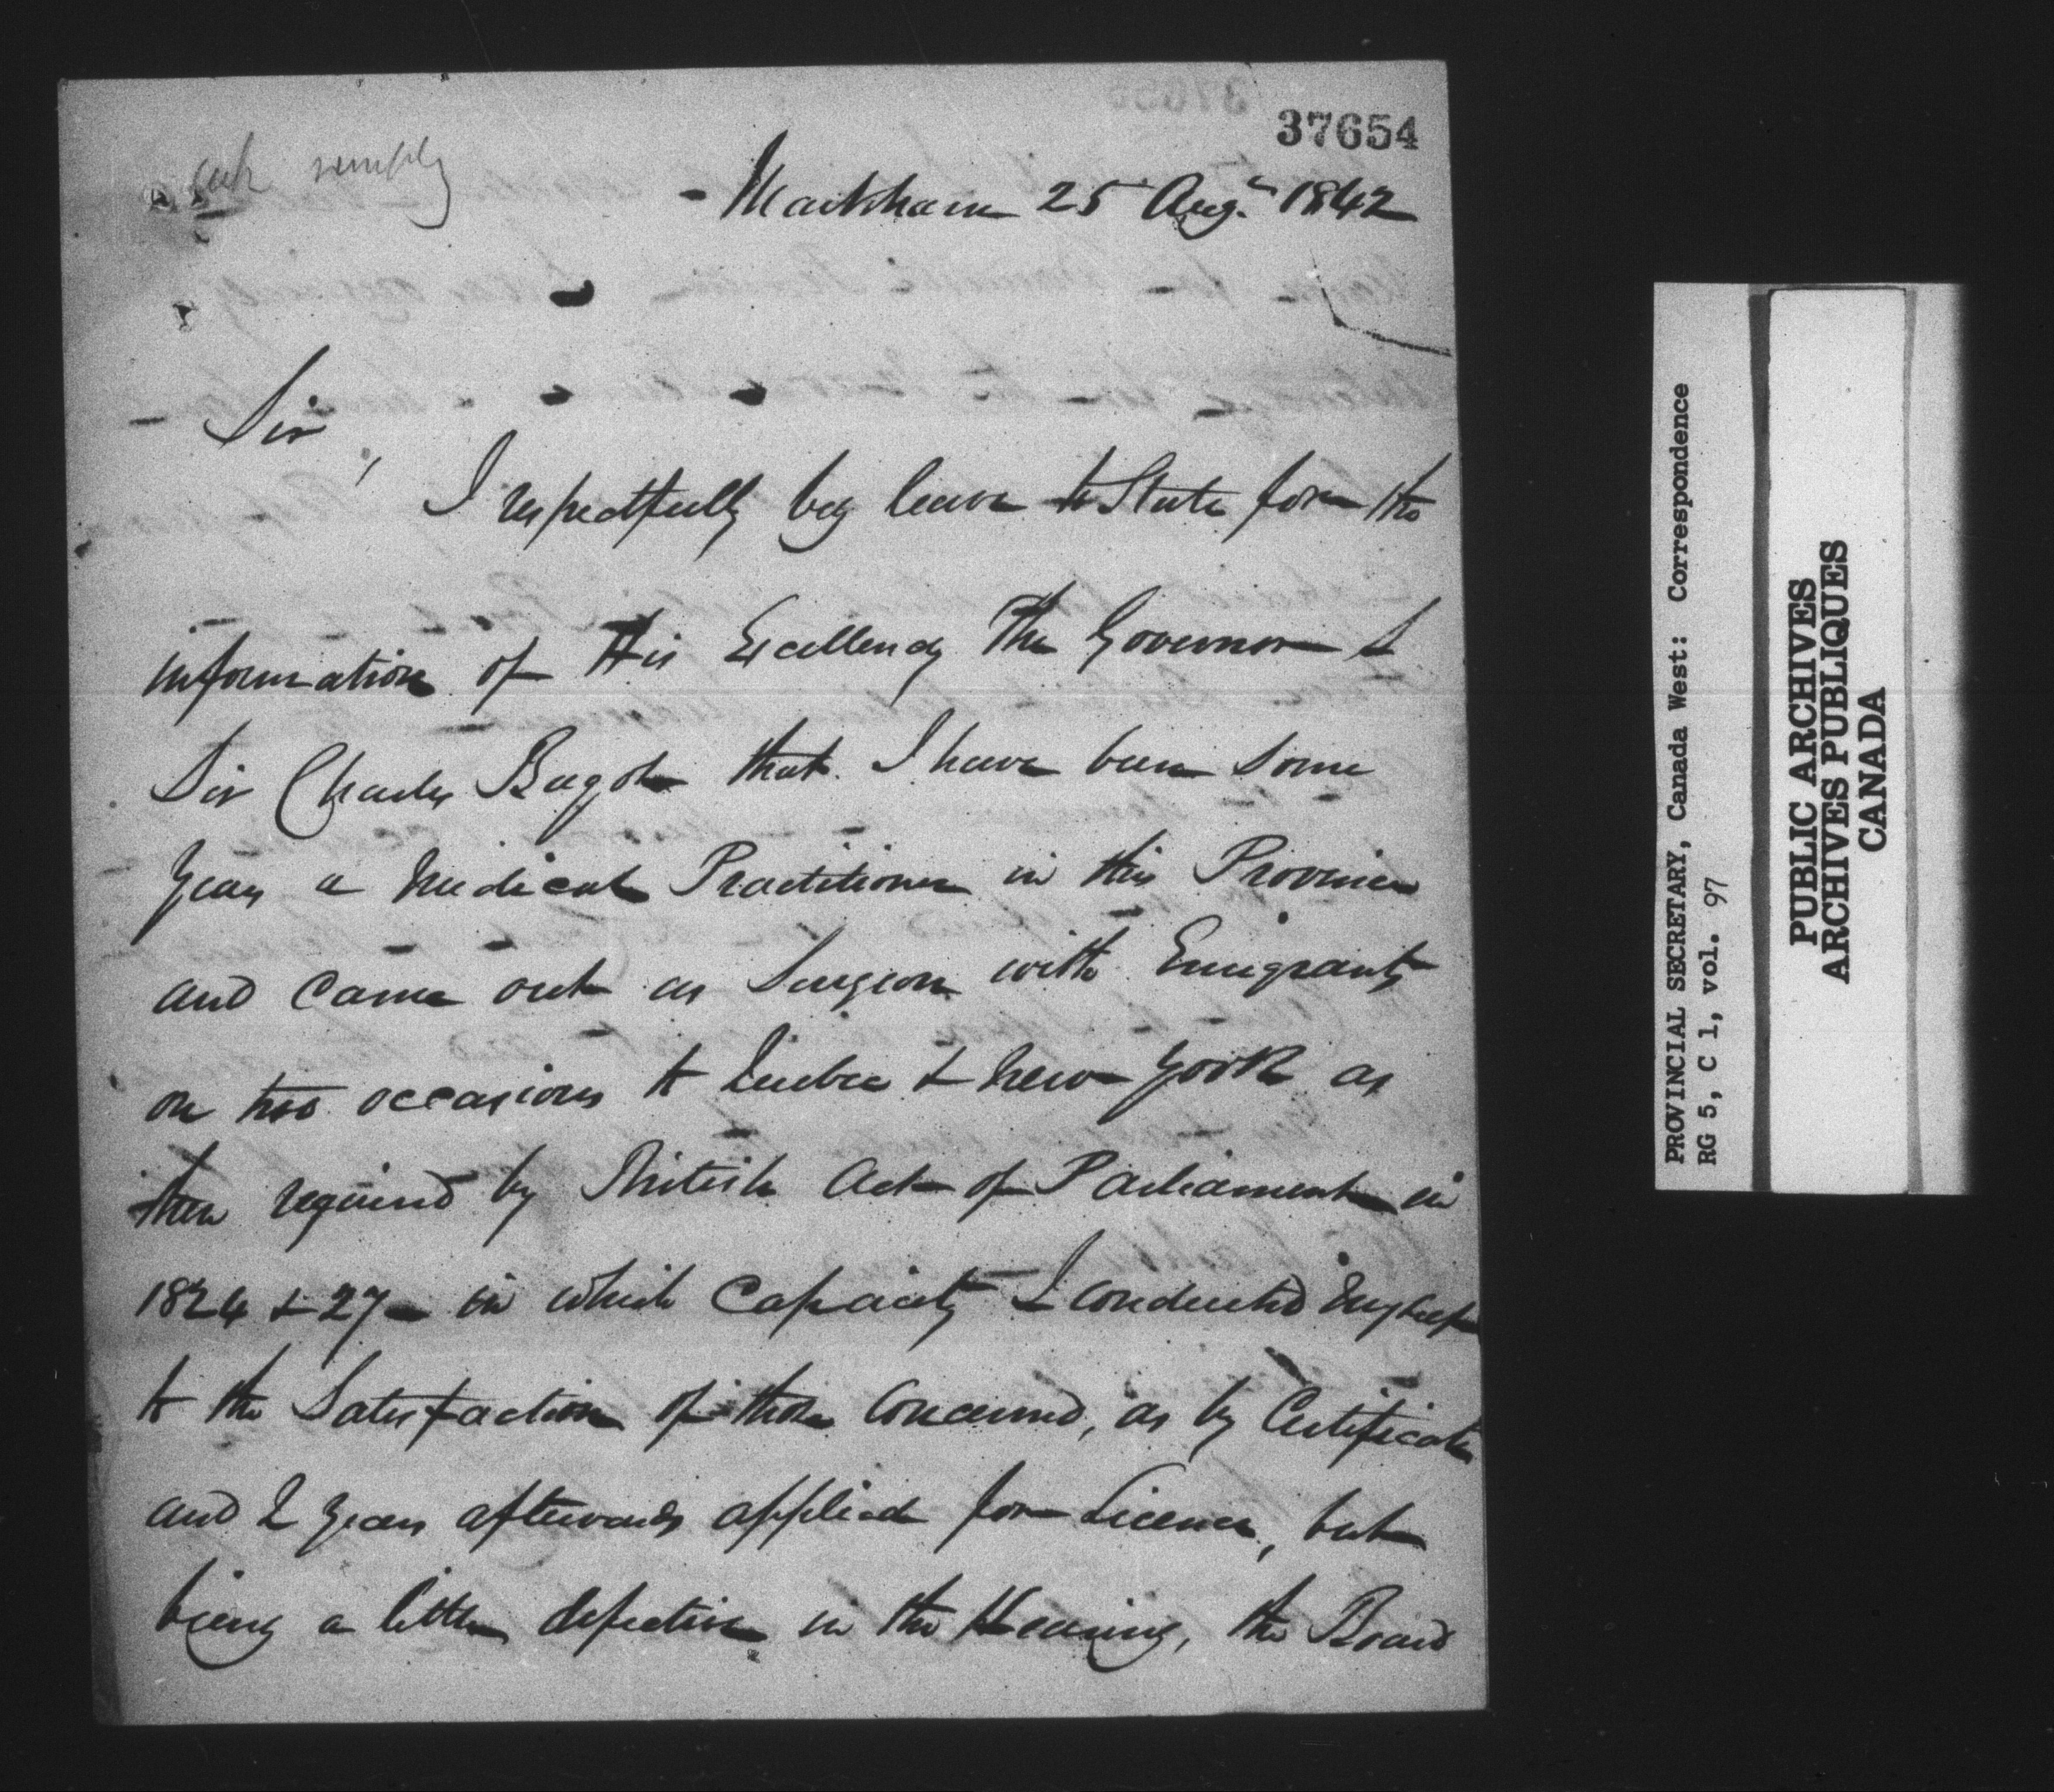 37654
Markham 25 Augt 1842
Sir,
I respectfully beg leave to State for the
information of His Excellency The Governor &
Sir Charles Bagot that I have been some
years a Medical Practitioner in this Province
and came out as Surgeon with Emigrants
on two occasions to Quebec & New York as
then required by British Act of Parliament in
1824 & 27 - in which capacity I conducted myself
to the Satisfaction of those Concerned, as by Certificates
and 2 years afterwards applied for Licence, but
being a little defective in the Hearing, the Board
PROVINCIAL SECRETARY, Canada West: Correspondence
RG 5, C 1, vol. 97
PUBLIC ARCHIVES
ARCHIVES PUBLIQUES
CANADA